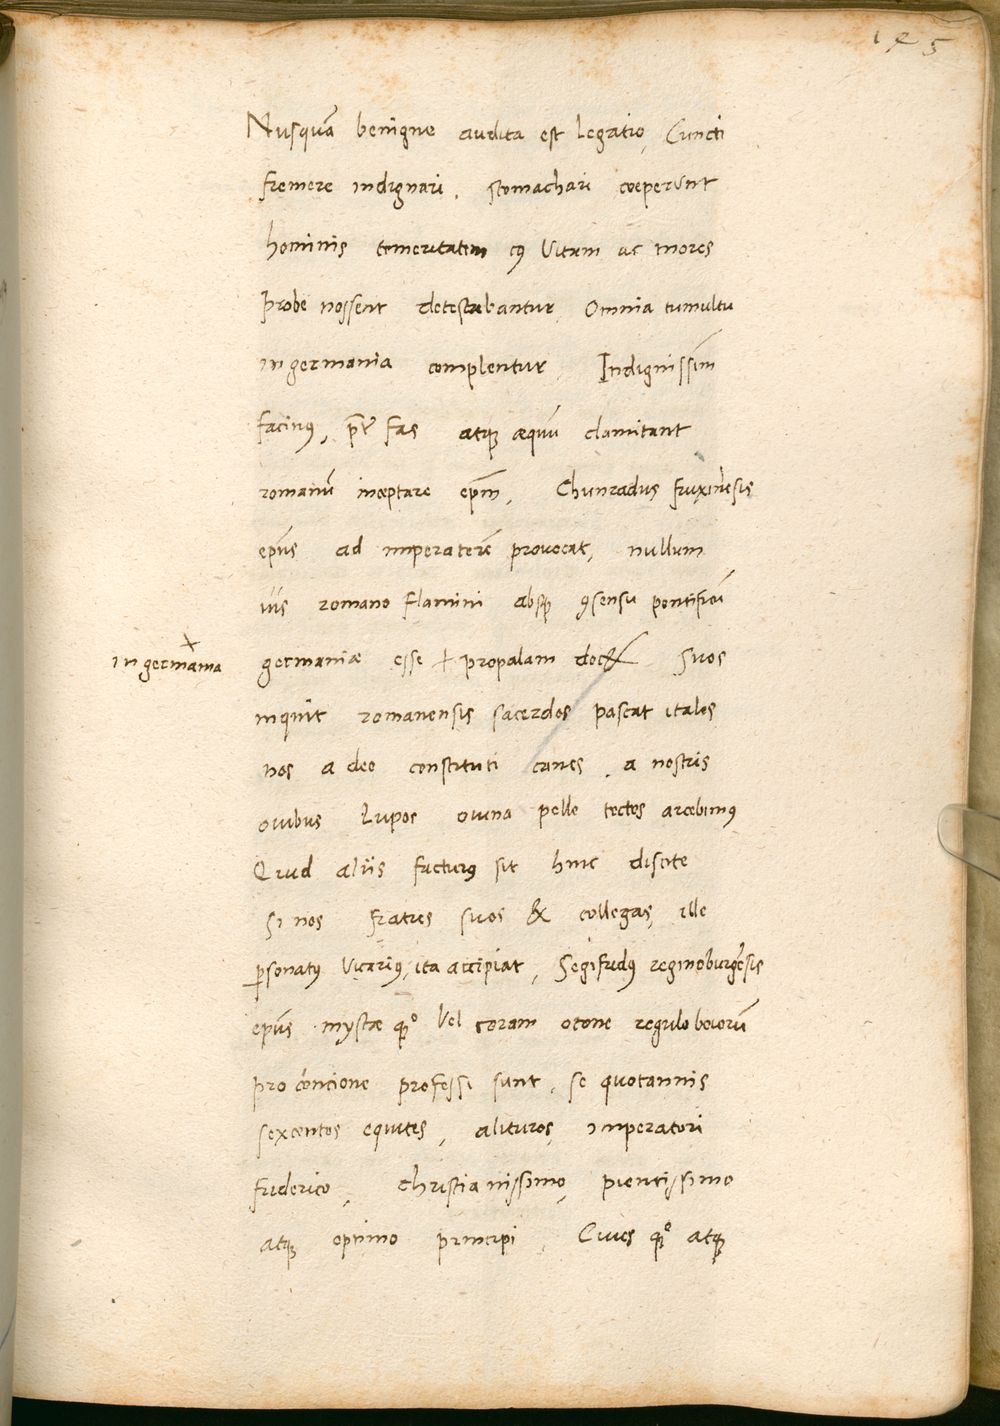 145
Nusquā benigne audita est legatio, Cuncti
fremere indignari, stomachari coeperunt
hominis temeritatem cꝰ vitam ac mores
probe nossent detestabantur, Omnia tumultu
in germania complentur, Indignissim̄
facinꝰ, p̄t fas atqꝫ æquū clamitant
romanū inceptare ep̄m, Chunradus fruxinēsis
ep̄us ad imperatorē provocat, nullum
ius romano flamini absqꝫ ꝯsensu pontificū
in germania germaniæ esse + propalam docet Suos
inquit romanensis sacerdos pascat italos
nos a deo constituti canes, a nostris
ovibus Lupos ovina pelle tectos arcebimꝰ
Quid aliis facturꝰ sit hinc discite
Si nos fratres suos & collegas, ille
ꝑsonatꝰ vicariꝰ, ita accipiat, Segifridꝰ reginoburgēsis
ep̄us mystæ qꝫ° vel coram otone regulo boiorū
pro concione professi sunt, se quotannis
sexcentos equites, alituros, imperatori
friderico, christianissimo, pientissimo
atqꝫ optimo principi, Cives qꝫ° atqꝫ